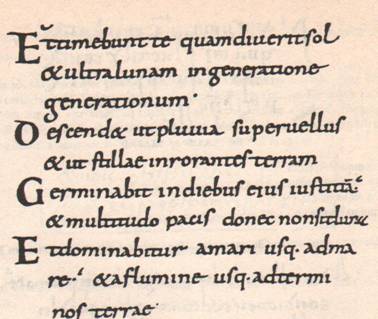 Et timebunt te quamdiu erit sol
& ultra lunam in generatione
generationum·
Descend& ut pluuia super uellus
& ut stillae inrorantes terram
Germinabit in diebus eius iustitia
& multitudo pacis donec non sit lunae
Et dominabitur a mari usq· ad ma
re· & a flumine usq· ad termi
nos terrae